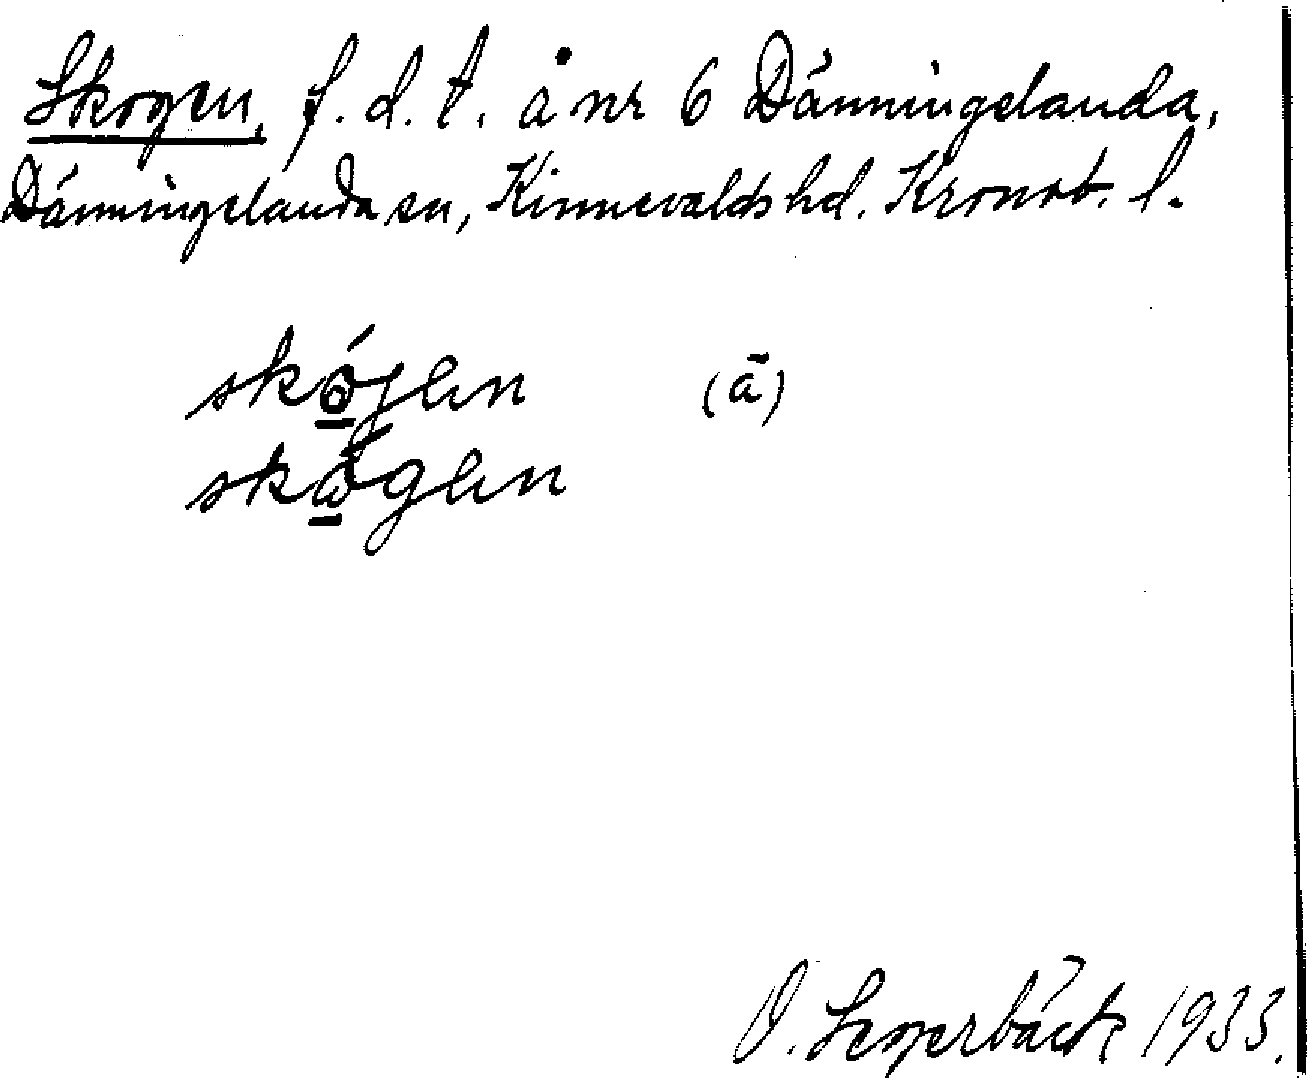 Skogen, f. d. t. å nr 6 Dänningelanda,
Dänningelanda sn, Kinnevalds hd. Kronob. l.
skógen (ā)
skógen
O. Segerbäck 1933.